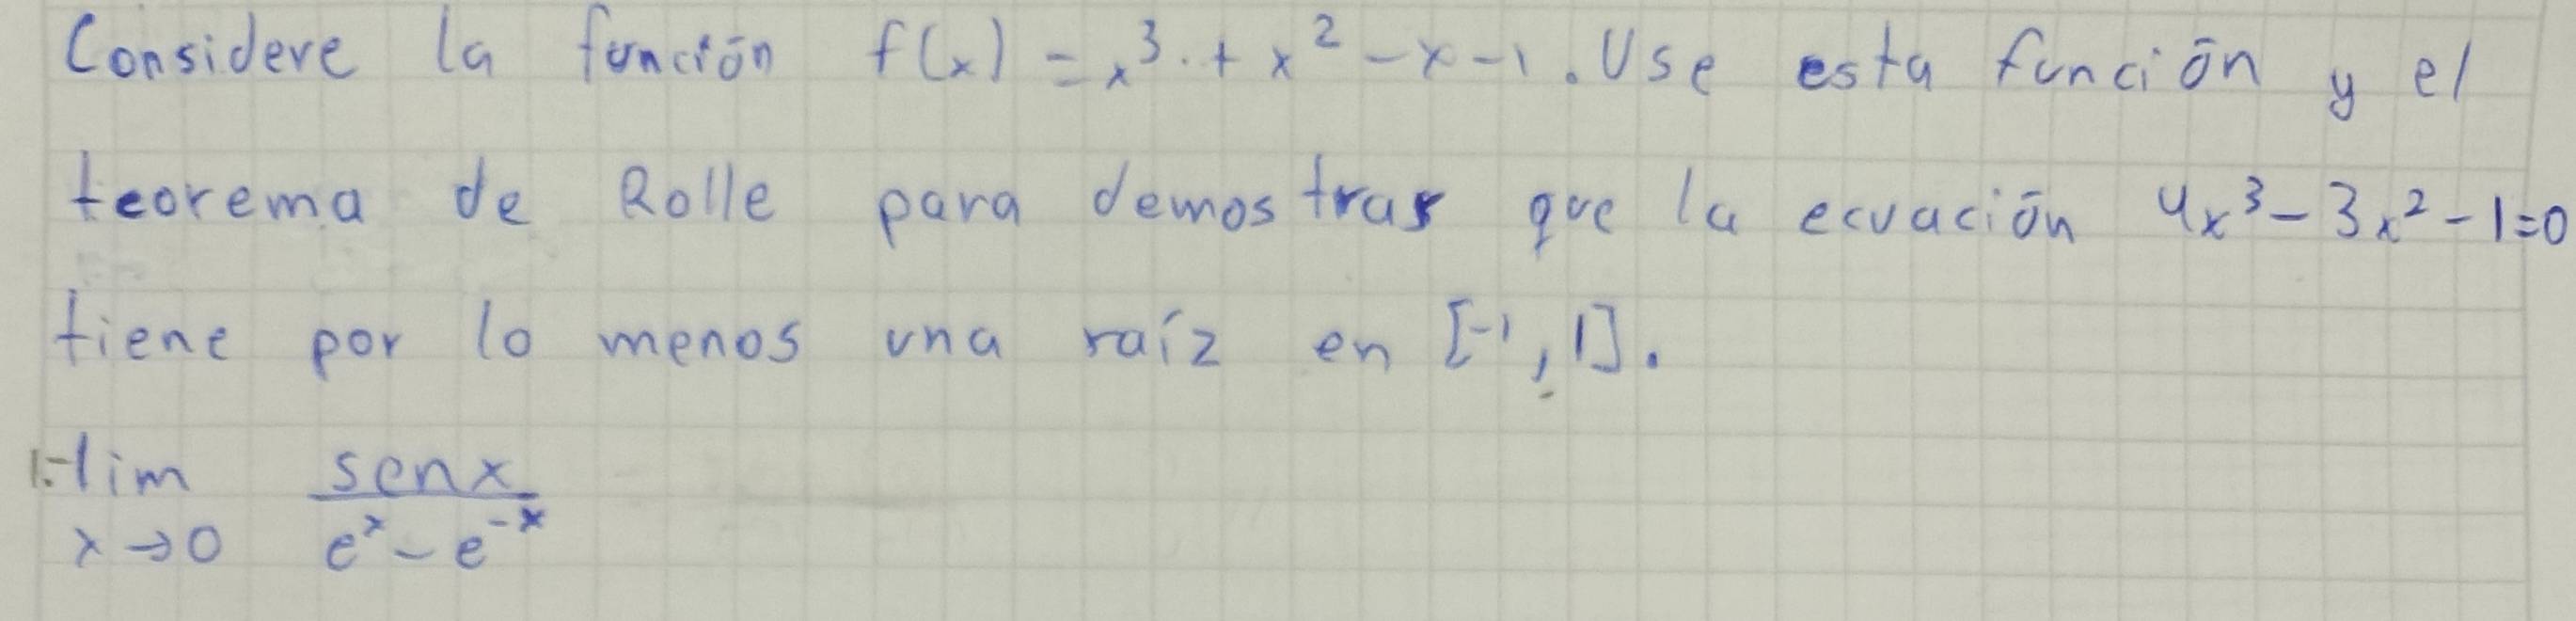 Considere la función f(x) = x³ + x² - x - 1. Use esta función y el
teorema de Rolle para demostrar que la ecuación 4x³ - 3x² - 1 = 0
tiene por lo menos una raíz en [-1, 1].
1.- lim senx
x→0 eˣ - e⁻ˣ